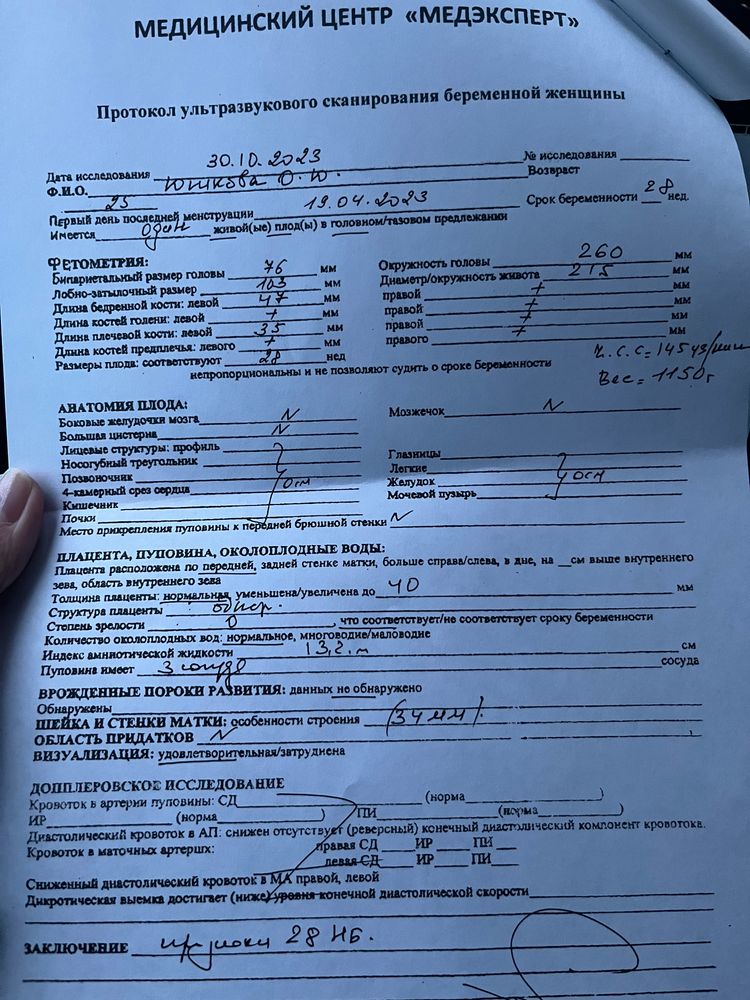 МЕДИЦИНСКИЙ ЦЕНТР «МЕДЭКСПЕРТ»
Протокол ультразвукового сканирования беременной женщины
Дата исследования 30.10.2023 № исследования
Ф.И.О. Юшкова О.Ю. Возвраст
25
Первый день последней менструации 19.04.2023 Срок беременности 28 нед.
Имеется один живой(ые) плод(ы) в головном/тазовом предлежании
ФЕТОМЕТРИЯ:
Бипариетальный размер головы 76 мм Окружность головы 260 мм
Лобно-затылочный размер 103 мм Диаметр/окружность живота 215 мм
Длина бедренной кости: левой 47 мм правой + мм
Длина костей голени: левой + мм правой + мм
Длина плечевой кости: левой 35 мм правой + мм
Длина костей предплечья: левого + мм правого + мм
Размеры плода: соответствуют 28 нед
Ч.С.С.=145 уд/мин
непропорциональны и не позволяют судить о сроке беременности
Вес=1150г
АНАТОМИЯ ПЛОДА:
Боковые желудочки мозга N Мозжечок N
Большая цистерна N
Лицевые структуры: профиль Глазницы
Носогубный треугольник Легкие
Позвоночник Желудок
4-камерный срез сердца Мочевой пузырь
осм осм
Кишечник
Почки
Место прикрепления пуповины к передней брюшной стенки N
ПЛАЦЕНТА, ПУПОВИНА, ОКОЛОПЛОДНЫЕ ВОДЫ:
Плацента расположена по передней, задней стенке матки, больше справа/слева, в дне, на __см выше внутреннего
зева, область внутреннего зева
Толщина плаценты: нормальная, уменьшена/увеличена до 40 мм
Структура плаценты
Степень зрелости 0, что соответствует/не соответствует сроку беременности
Количество околоплодных вод: нормальное, многоводие/маловодие
Индекс амниотической жидкости см
Пуповина имеет 3 сосуда
ВРОЖДЕННЫЕ ПОРОКИ РАЗВИТИЯ: данных не обнаружено
Обнаружены
ШЕЙКА И СТЕНКИ МАТКИ: особенности строения (34 мм).
ОБЛАСТЬ ПРИДАТКОВ N
ВИЗУАЛИЗАЦИЯ: удовлетворительная/затруднена
ДОППЛЕРОВСКОЕ ИССЛЕДОВАНИЕ
Кровоток в артерии пуповины: СД (норма )
ИР (норма ) ПИ (норма )
Диастолический кровоток в АП: снижен отсутствует (реверсный) конечный диастолический компонент кровотока.
Кровоток в маточных артериях: правая СД ИР ПИ
левая СД ИР ПИ
Сниженный диастолический кровоток в МА правой, левой
Дикротическая выемка достигает (ниже) уровня конечной диастолической скорости
ЗАКЛЮЧЕНИЕ 28 НБ.